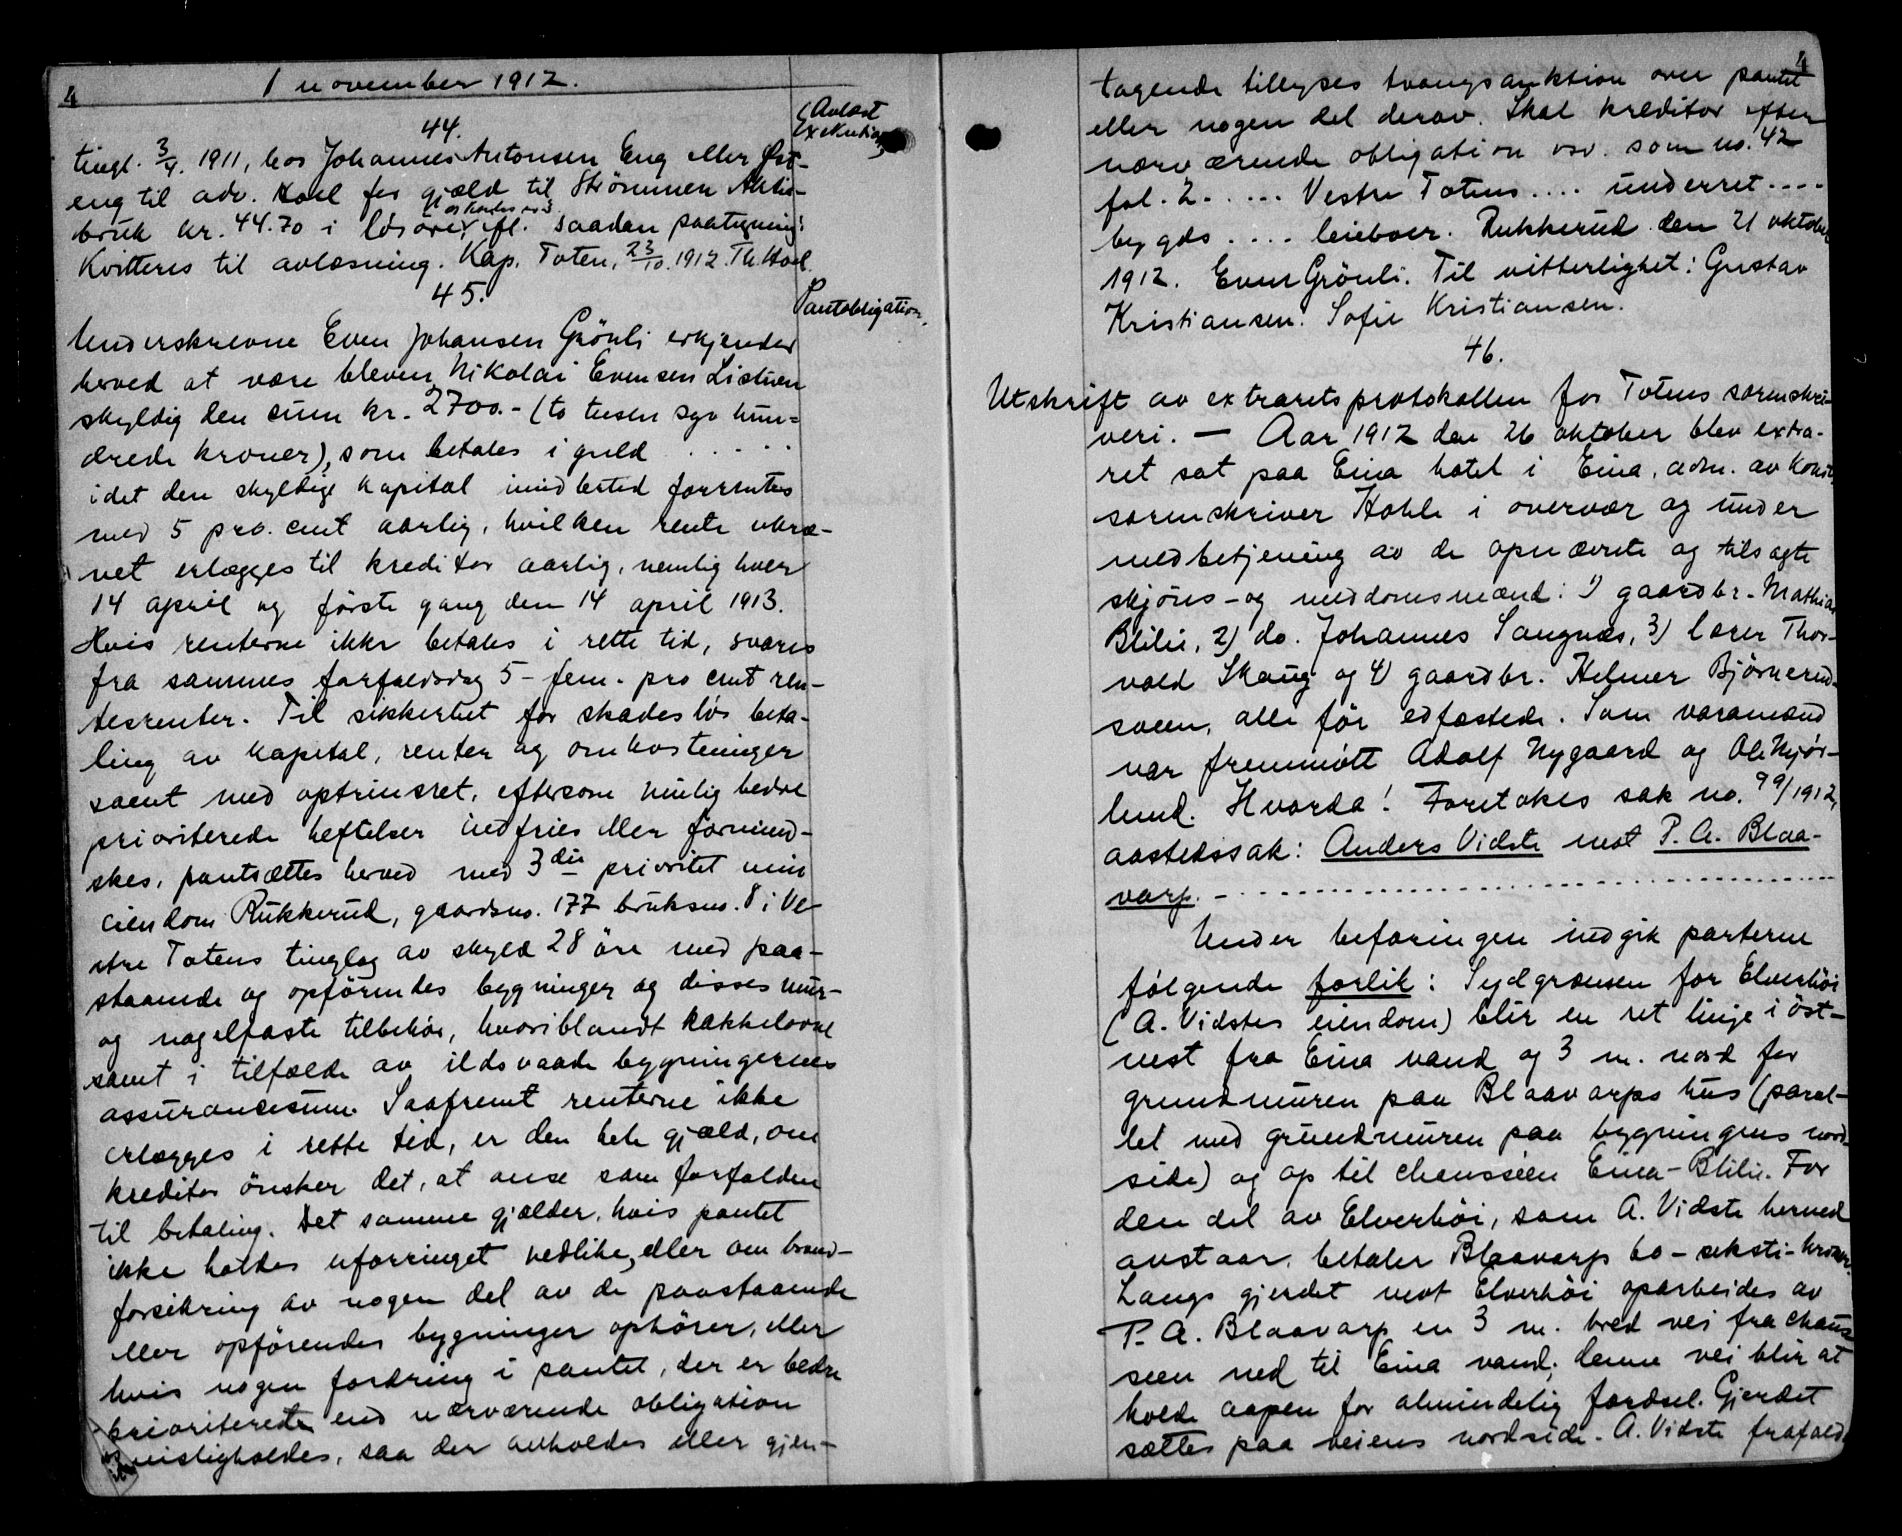 4
1 november 1912.
(Avløst
Exekution)
44.
tingl. 3/4. 1911, hos Johannes Antonsen Eng eller Øst-
eng til adv. Hoel for gjæld til Strømmen
bruk kr. 44.70 i løsøre ifl. saadan paategning:
Kvitteres til avløsning. Kap. Toten, 23/10. 1912. Th. Hoel.
45.
Pantobligation.
Underskrevne Even Johansen Grönli erkjender
herved at være bleven Nikolai Evensen Listuen
skyldig den sum kr. 2700.- (to tusen syv hun-
drede kroner), som betales i guld . . . . .
idet den skyldige kapital imidlertid forrentes
med 5 pro. cent aarlig, hvilken rente ukræ-
vet erlægges til kreditor aarlig, nemlig hver
14 april og første gang den 14 april 1913.
Hvis renterne ikke betales i rette tid, svares
fra sammes forfaldsdag 5 - fem - pro cent ren-
tesrenter. Til sikkerhet for skadesløs beta-
ling av kapital, renter og omkostninger
samt med optrinsret, eftersom mulig bedre
prioriterede heftelser indfries eller formind-
skes, pantsættes herved med 3die prioritet min
eiendom Rukkerud, gaardsno. 177 bruksno. 8 i Ve-
stre Totens tinglag av skyld 28 öre med paa-
staaende og opförendes bygninger og disses mur-
og nagelfaste tilbehör, hvoriblandt kakkelovne
samt i tilfælde av ildsvaade bygningernes
assurancesum. Saafremt renterne ikke
erlægges i rette tid, er den hele gjæld, om
kreditor önsker det, at anse som forfalden
til betaling. Det samme gjælder, hvis pantet
ikke holdes uforringet vedlike, eller om brand-
forsikring av nogen del av de paastaaende
eller opförendes bygninger ophører, eller
hvis nogen fordring i pantet, der er bedre
prioriterede end nærværende obligation
misligholdes, saa der avholdes eller gjen-
4
tagende tillyses tvangsauktion over pantet
eller nogen del derav. Skal kreditor efter
nærværende obligation osv. som no. 42
fol. 2. . . . . Vestre Totens . . . . underret . . . .
bygds . . . . leieboer. Rukkerud den 21 oktober
1912. Even Grönli. Til vitterlighet: Gustav
Kristiansen. Sofie Kristiansen.
46.
Utskrift av extraretsprotokollen for Totens sorenskri-
veri. — Aar 1912 den 26 oktober blev extra-
ret sat paa Eina hotel i Eina, adm. av konst.
sorenskriver Hohle i overvær og under
medbetjening av de opnævnte og tilsagte
skjöns- og meddomsmænd: 1) gaardbr. Mathias
Blilie, 2) do. Johannes Sangnæs, 3) lærer Thor-
vald Skaug og 4) gaardbr. Helmer Bjørnerud-
sveen, alle för edfæstede. Som varamænd
var fremmött Adolf Nygaard og Ole Mjör-
lund. Hvorda! Foretokes sak no. 99/1912,
aastedssak: Anders Vidste mot P. A. Blaa-
varp. - . . . . . . . . . .
Under befaringen indgik parterne
følgende forlik: Sydgrænsen for Elverhöi
(A. Vidstes eiendom) blir en ret linje i öst-
vest fra Eina vand og 3 m. nord for
grundmuren paa Blaavarps hus (paral-
lel med grundmuren paa bygningens nord-
side) og op til chausséen Eina-Blilie. For
den del av Elverhöi, som A. Vidste herved
avstaar, betaler Blaavarp 60 - seksti - kroner.
Langs gjerdet mot Elverhöi oparbeides av
P. A. Blaavarp en 3 m. bred vei fra chaus-
seen ned til Eina vand; denne vei blir at
holde aapen for almindelig færdsel. Gjerdet
sættes paa veiens nordside. A. Vidste frafald